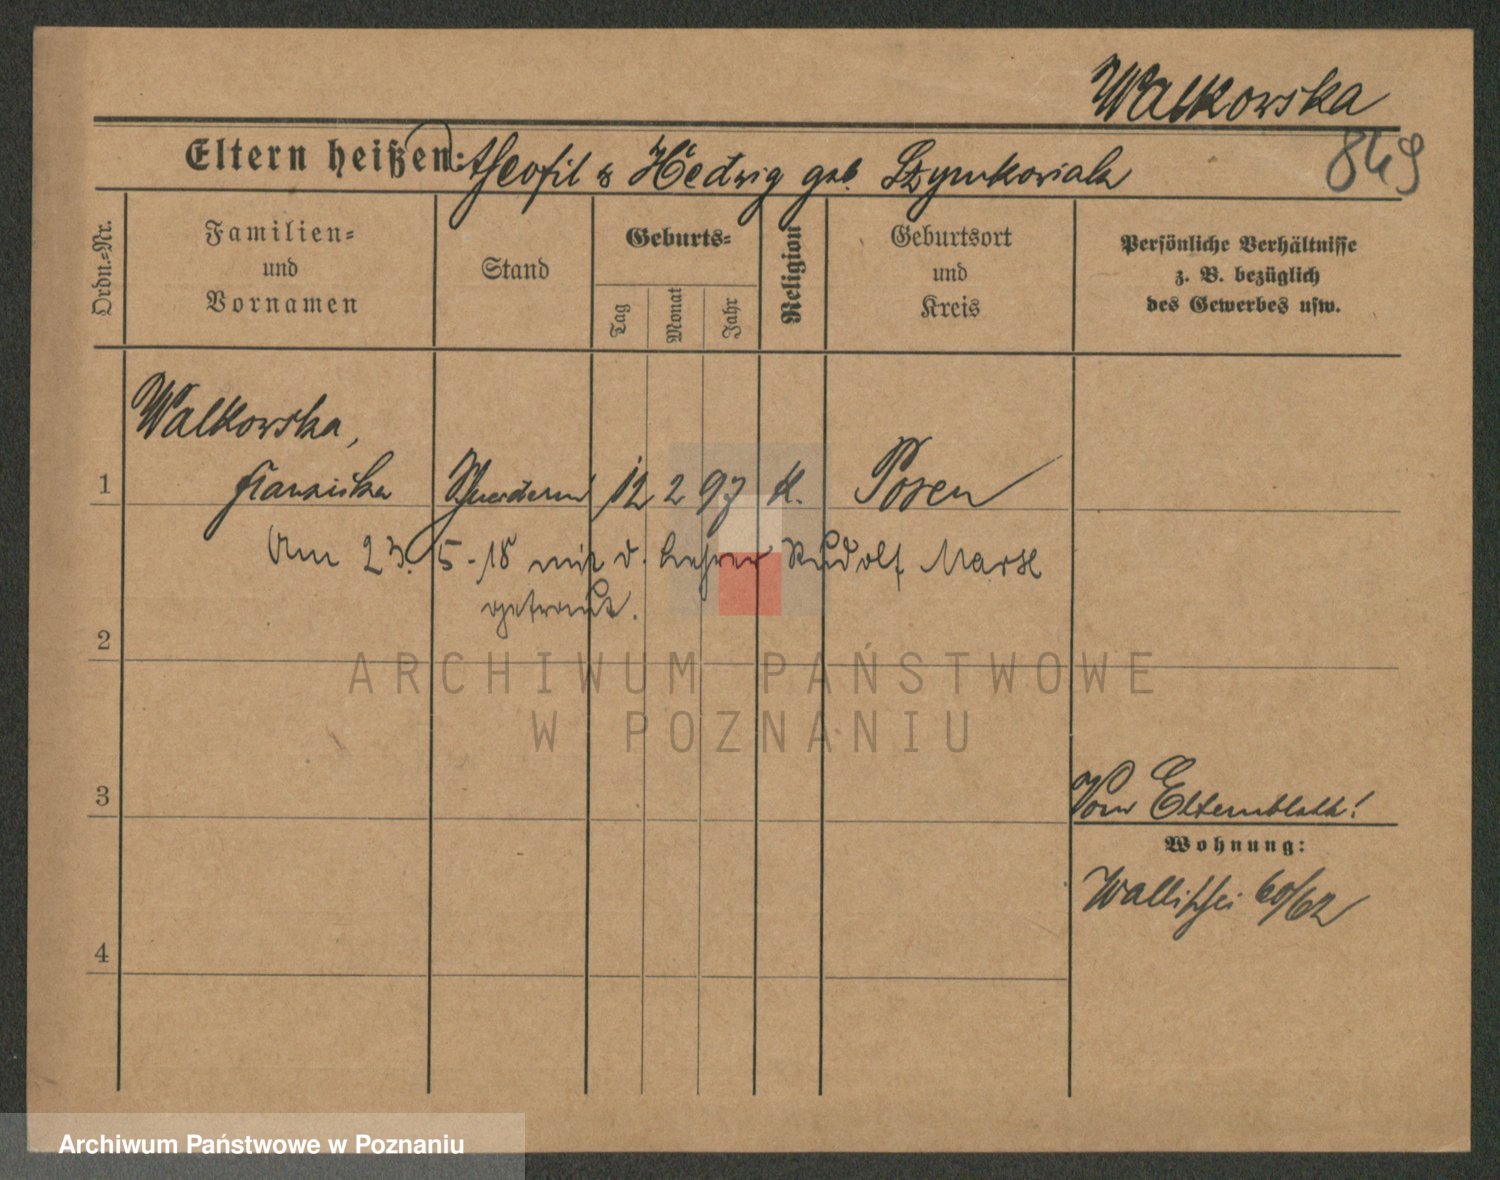 Walkowska
849
Eltern heißen: Theofil & Hedwig geb. Szymkowiak
Ordn.-Nr.
Familien-
und
Vornamen
Stand
Geburts-
Tag
Monat
Jahr
Religion
Geburtsort
und
Kreis
Persönliche Verhältnisse
z. B. bezüglich
des Gewerbes usw.
Walkowska,
1 Franziska 12 2 97 k. Posen
Am 23. 5. 18 mit d. Lehrer Rudolf
getraut.
2
ARCHIWUM PAŃSTWOWE
W POZNANIU
3
Vom Elternblatt!
Wohnung:
Wallischei 60/62
4
Archiwum Państwowe w Poznaniu